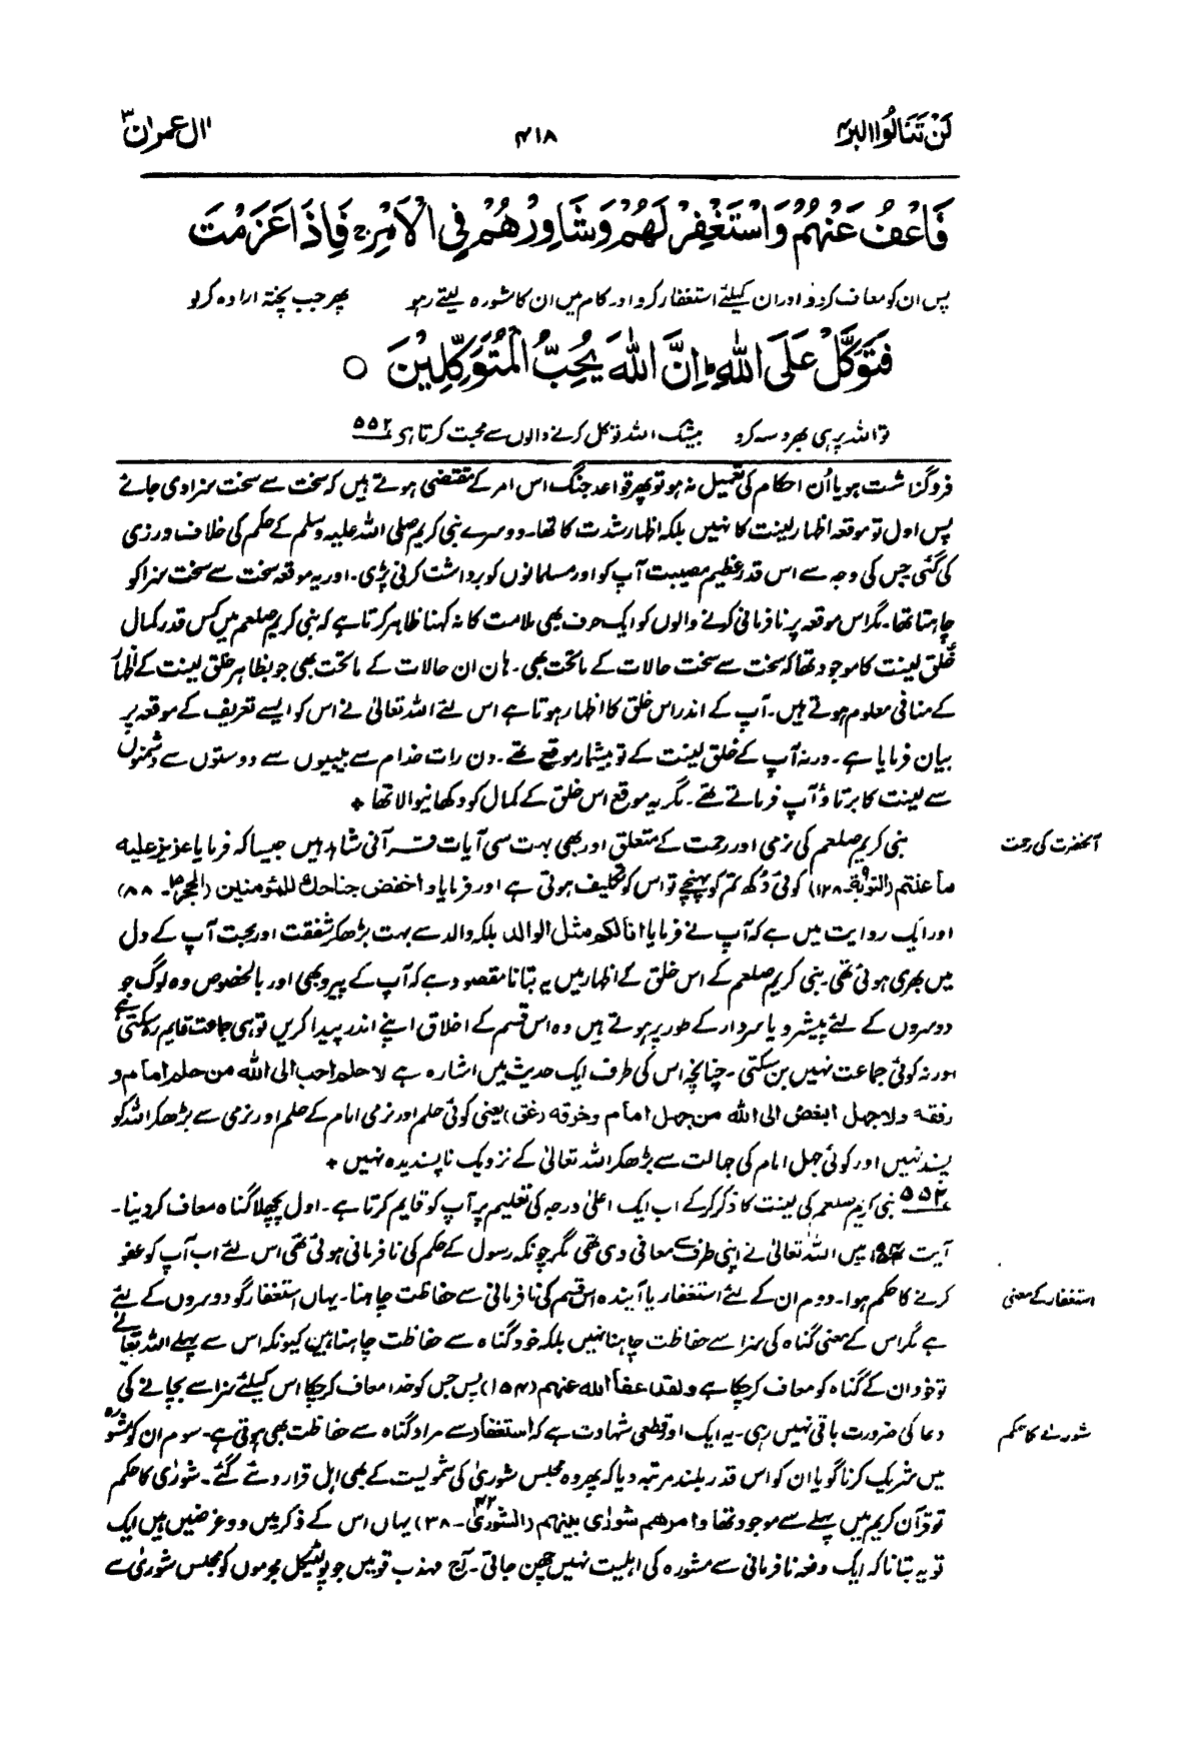 لَنْ تَنَالُوا البر۴
۴۱۸
اٰل عمرٰن۳
فَاعْفُ عَنْهُمْ وَاسْتَغْفِرْ لَهُمْ وَشَاوِرْهُمْ فِي الْاَمْرِ ۚ فَاِذَا عَزَمْتَ
پس ان کو معاف کردو اور ان کیلئے استغفار کرو اور کام میں ان کا مشورہ لیتے رہو پھر جب پختہ ارادہ کرلو
فَتَوَكَّلْ عَلَى اللّٰهِ ؕ اِنَّ اللّٰهَ يُحِبُّ الْمُتَوَكِّلِيْنَ ○
تو اللہ پر ہی بھروسہ کرو بیشک اللہ توکل کرنے والوں سے محبت کرتا ہی ۵۵۲
فروگزاشت ہو یا اُن احکام کی تعمیل نہ ہو تو پھر قواعد جنگ اس امر کے مقتضی ہوتے ہیں کہ سخت سے سخت سزا دی جائے
پس اول تو موقعہ اظہار لینت کا نہیں بلکہ اظہار شدت کا تھا۔ دوسرے نبی کریم صلی اللہ علیہ وسلم کے حکم کی خلاف ورزی
کی گئی جس کی وجہ سے اس قدر عظیم مصیبت آپ کو اور مسلمانوں کو برداشت کرنی پڑی۔ اور یہ موقعہ سخت سے سخت سزا کو
چاہتا تھا۔ مگر اس موقعہ پر نافرمانی کرنے والوں کو ایک حرف بھی ملامت کا نہ کہنا ظاہر کرتا ہے کہ نبی کریم صلعم میں کس قدر کمال
خُلق لینت کا موجود تھا کہ سخت سے سخت حالات کے ماتحت بھی۔ ہاں ان حالات کے ماتحت بھی جو بظاہر خلق لینت کے اظہار
کے منافی معلوم ہوتے ہیں۔ آپ کے اندر اس خلق کا اظہار ہوتا ہے اس لئے اللہ تعالیٰ نے اس کو ایسے تعریف کے موقعہ پر
بیان فرمایا ہے۔ ورنہ آپ کے خلق لینت کے تو بیشمار موقع تھے۔ دن رات خدام سے بیبیوں سے دوستوں سے دشمنوں
سے لینت کا برتاؤ آپ فرماتے تھے۔ مگر یہ موقع اس خلق کے کمال کو دکھانیوالا تھا +
آنحضرت کی رحمت
نبی کریم صلعم کی نرمی اور رحمت کے متعلق اور بھی بہت سی آیات قرآنی شاہد ہیں جیسا کہ فرمایا عزیز علیہ
ما عنتم (التوبة۹۔ ۱۲۸) کوئی دُکھ تم کو پہنچے تو اس کو تکلیف ہوتی ہے اور فرمایا واخفض جناحك للمؤمنین (الحجر۱۵۔ ۸۸)
اور ایک روایت میں ہے کہ آپ نے فرمایا انا لکم مثل الوالد بلکہ والد سے بہت بڑھکر شفقت اور محبت آپ کے دل
میں بھری ہوئی تھی۔ نبی کریم صلعم کے اس خلق کے اظہار میں یہ بتانا مقصود ہے کہ آپ کے پیرو بھی اور بالخصوص وہ لوگ جو
دوسروں کے لئے پیشرو یا سردار کے طور پر ہوتے ہیں وہ اس قسم کے اخلاق اپنے اندر پیدا کریں تو ہی جماعت قایم رہ سکتی ہے
ورنہ کوئی جماعت نہیں بن سکتی۔ چنانچہ اس کی طرف ایک حدیث میں اشارہ ہے لا حلم احب الی اللہ من حلم امام و
رفقه ولا جهل ابغض الی اللہ من جهل امام وخرقه (غق) یعنی کوئی حلم اور نرمی امام کے حلم اور نرمی سے بڑھکر اللہ کو
پسند نہیں اور کوئی جہل امام کی جہالت سے بڑھکر اللہ تعالیٰ کے نزدیک ناپسندیدہ نہیں +
۵۵۲ نبی کریم صلعم کی لینت کا ذکر کرکے اب ایک اعلیٰ درجہ کی تعلیم پر آپ کو قایم کرتا ہے۔ اول پچھلا گناہ معاف کر دینا۔
آیت میں اللہ تعالیٰ نے اپنی طرف سے معافی دی تھی مگر چونکہ رسول کے حکم کی نافرمانی ہوئی تھی اس لئے اب آپ کو عفو
استغفار کے معنی
کرنے کا حکم ہوا۔ دوم ان کے لئے استغفار یا آیندہ اس قسم کی نافرمانی سے حفاظت چاہنا۔ یہاں استغفار گو دوسروں کے لئے
ہے مگر اس کے معنی گناہ کی سزا سے حفاظت چاہنا نہیں بلکہ خود گناہ سے حفاظت چاہنا ہیں کیونکہ اس سے پہلے اللہ تعالیٰ نے
تو خود ان کے گناہ کو معاف کر چکا ہے ولقد عفا اللہ عنهم (۱۵۴) پس جس کو خدا معاف کر چکا اس کیلئے سزا سے بچانے کی
شورٰے کا حکم
دعا کی ضرورت باقی نہیں رہی۔ یہ ایک اور قطعی شہادت ہے کہ استغفار سے مراد گناہ سے حفاظت بھی ہوتی ہے۔ سوم ان کو مشورہ
میں شریک کرنا گویا ان کو اس قدر بلند مرتبہ دیا کہ پھر وہ مجلس شوریٰ کی شمولیت کے بھی اہل قرار دئے گئے۔ شورٰی کا حکم
تو قرآن کریم میں پہلے سے موجود تھا وامرهم شورٰی بینهم (الشوریٰ۴۲۔ ۳۸) یہاں اس کے ذکر میں دو غرضیں ہیں ایک
تو یہ بتانا کہ ایک دفعہ نافرمانی سے مشورہ کی اہلیت نہیں چھن جاتی۔ آج مہذب قومیں جو پولٹیکل مجرموں کو مجلس شوریٰ سے